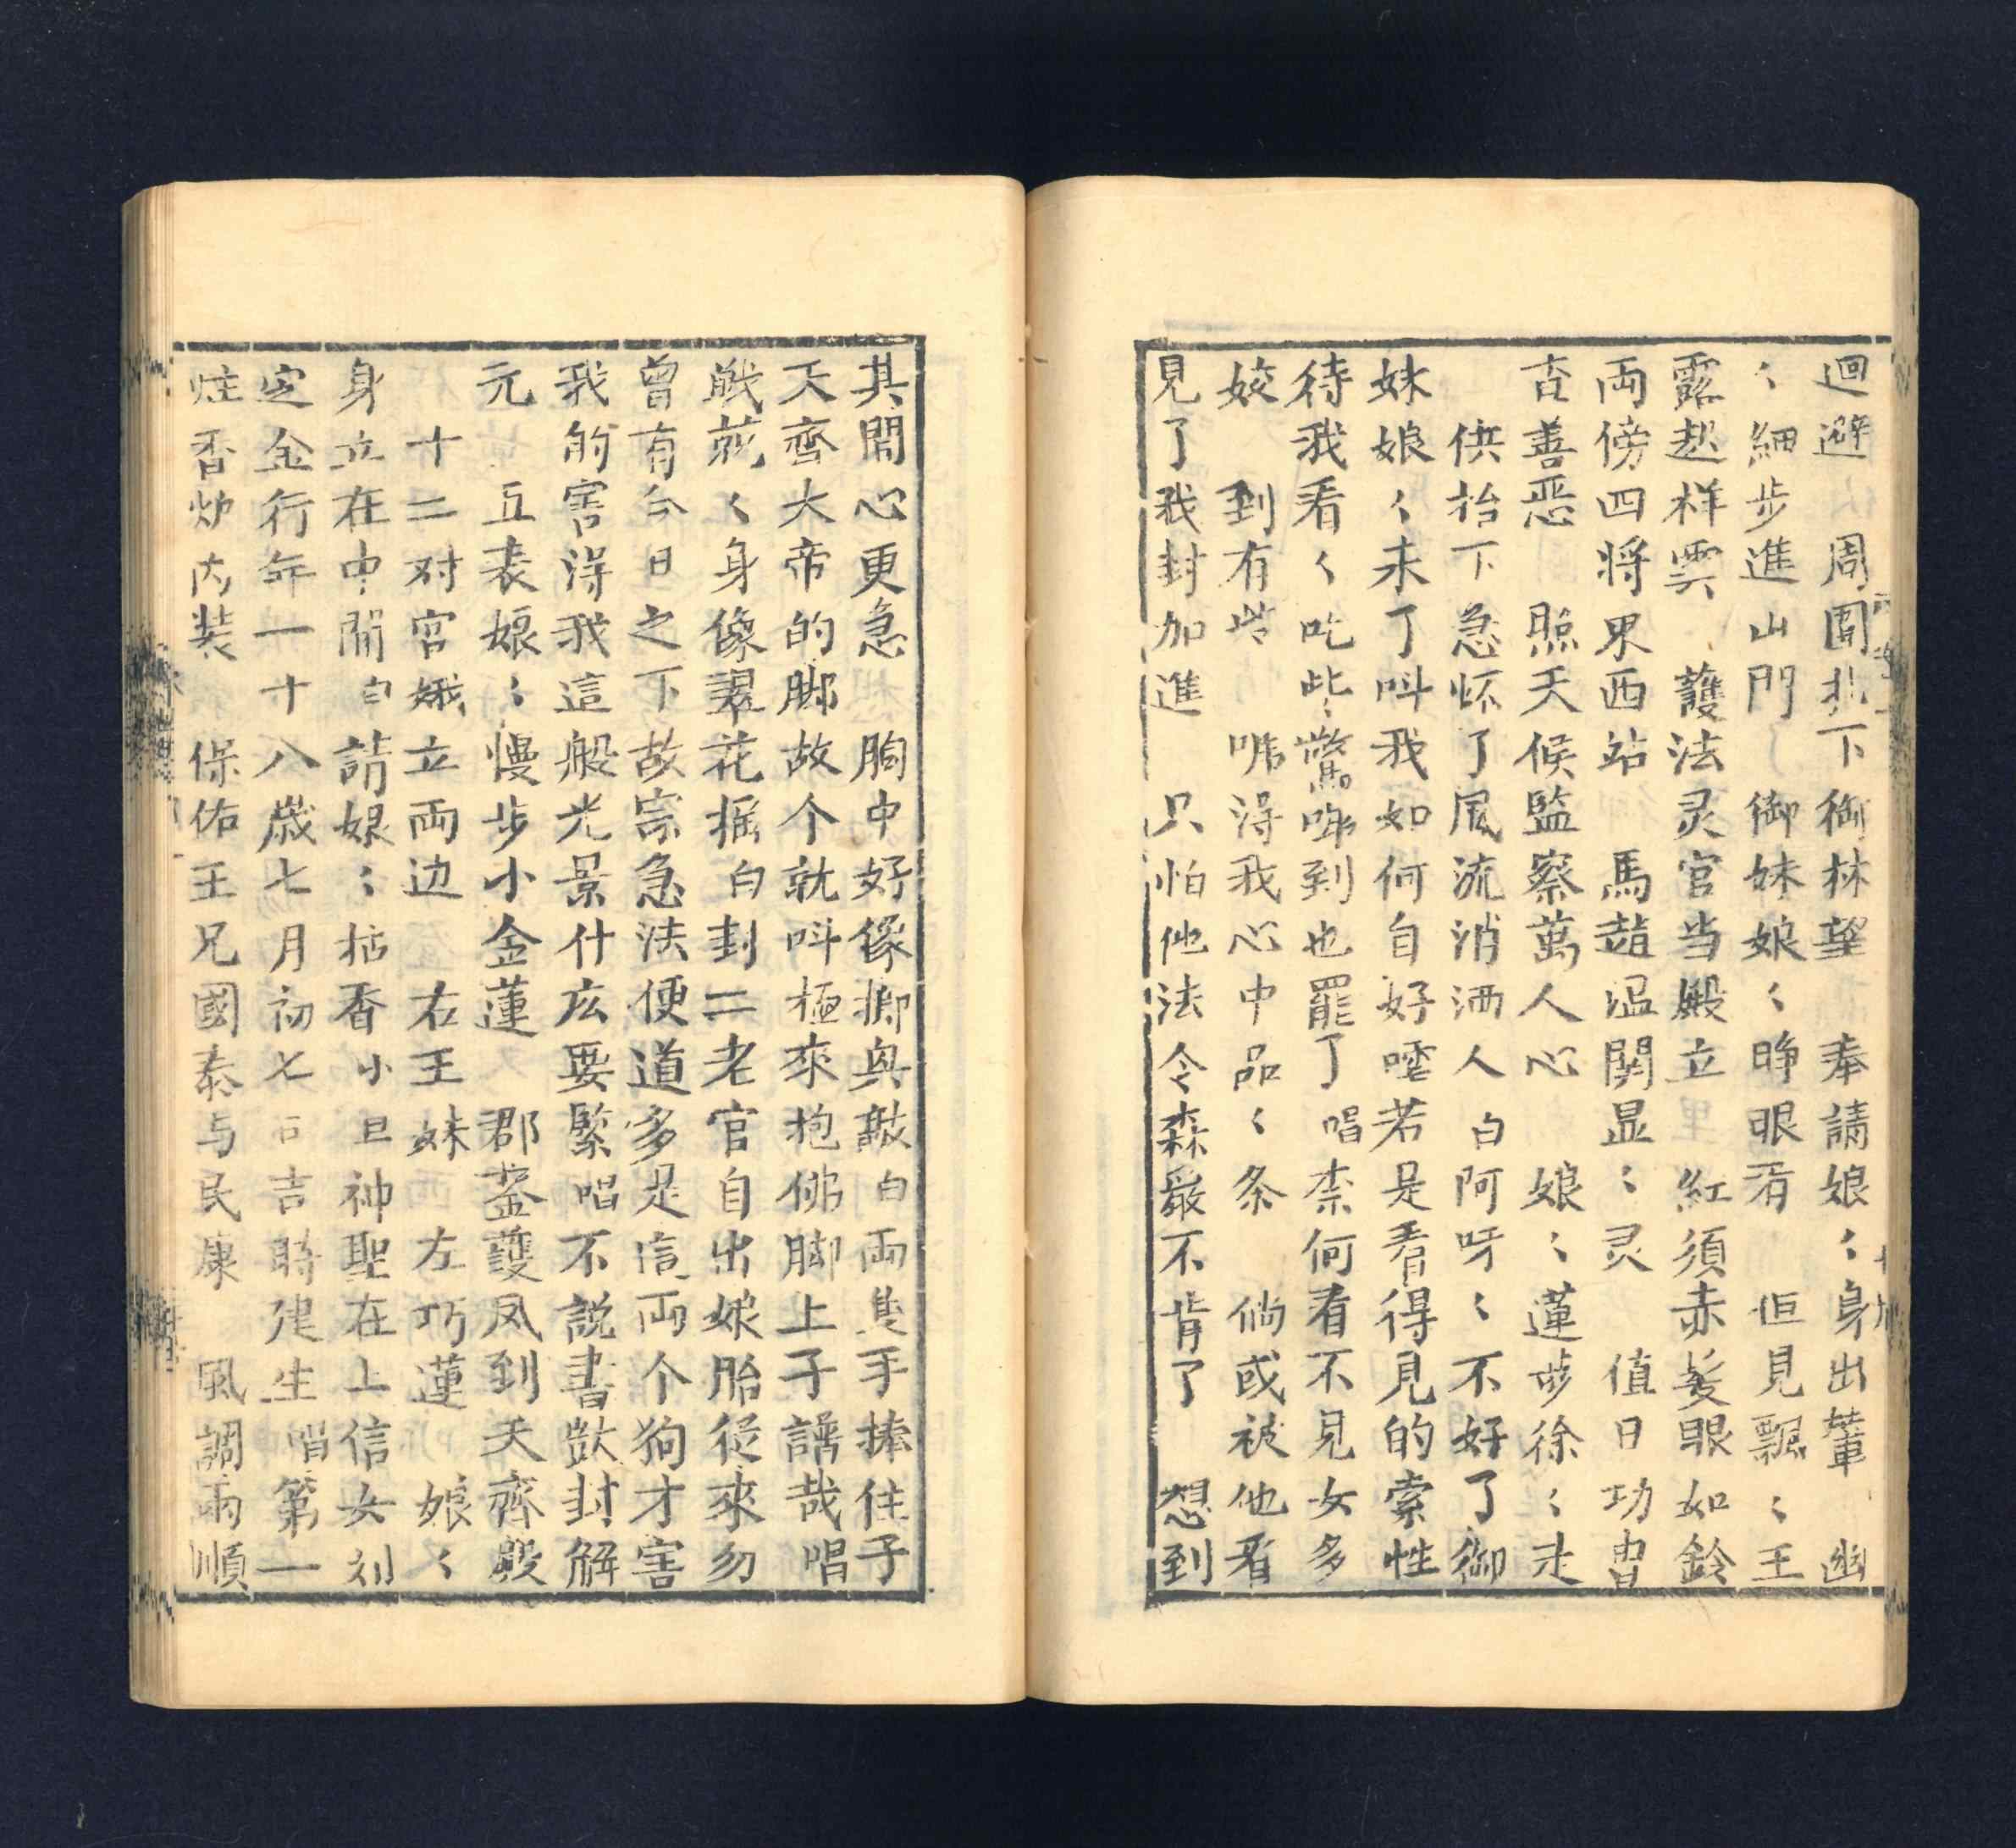 迴避 周圍扎下御林望 奉請娘〻身出輦 幽
〻細步進山門 御妹娘〻睁眼看 但見飄〻王
露起祥雲 護法灵官当殿立 紅須赤髮眼如鈴
両傍四將東西站 馬趙温関显〻灵 值日功曹
査善惡 照天候監察萬人心 娘〻蓮步徐〻走
供抬下急怀了風流消洒人 白阿呀〻不好了御
妹娘〻来了呌我如何自好嘘若是看得見的索性
待我看〻吃些驚唬到也罷了唱柰何看不見女多
姣 到有些 唬得我心中品〻条 倘或被他看
見了我封加進 只怕他法令森嚴不肯了 想到
其間心更急 胸中好像擲與敲白両隻手捧住子
天齊大帝的脚故个就呌極來抱佛脚上子謡哉唱
戰兢〻身像選花摇白封二老官自出娘胎從來勿
曾有今日之下故宗急法便道多是這両个狗才害
我的害得我這般光景什広要緊唱不説書獃封解
元 五表娘〻慢步小金蓮 郡鉴護凤到天齊殿
十二对宫娥立両边 右王妹 左巧蓮 娘〻
身立在中間白請娘〻拈香小旦神聖在上信女刘
定金行年一十八歳七月初七日吉時建生唱第一
炷香炉内装 保佑王兄國泰与民康 風調雨順